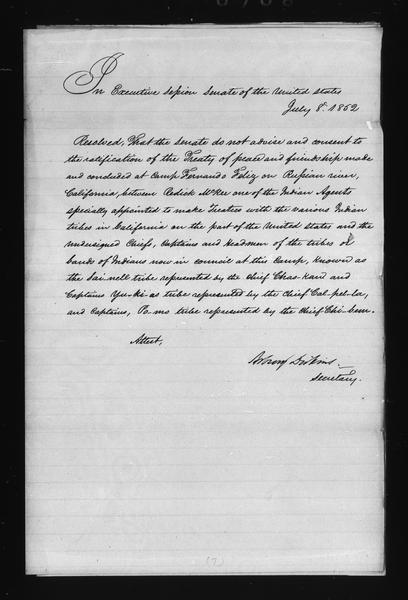 In Executive Session Senate of the United States
July 8. 1852
Resolved, That the Senate do not advise and consent to
the ratification of the Treaty of peace and friendship made
and concluded at Camp Fernando Feliz on Russian river,
California, between Redick McKee one of the Indian Agents
specially appointed to make Treaties with the various Indian
tribes in California on the part of the United States and the
undersigned Chiefs, Captains and Headmen of the tribes or
bands of Indians now in council at this Camp, known as
the Sai-nell tribe represented by the Chief Chas-kau and
Captains Yu-ki-as tribe represented by the Chief Cal-pel-la,
and Captains, Po-mo tribe represented by the Chief Chi-bem.
Attest,
Asbury Dickins
Secretary.
(7)